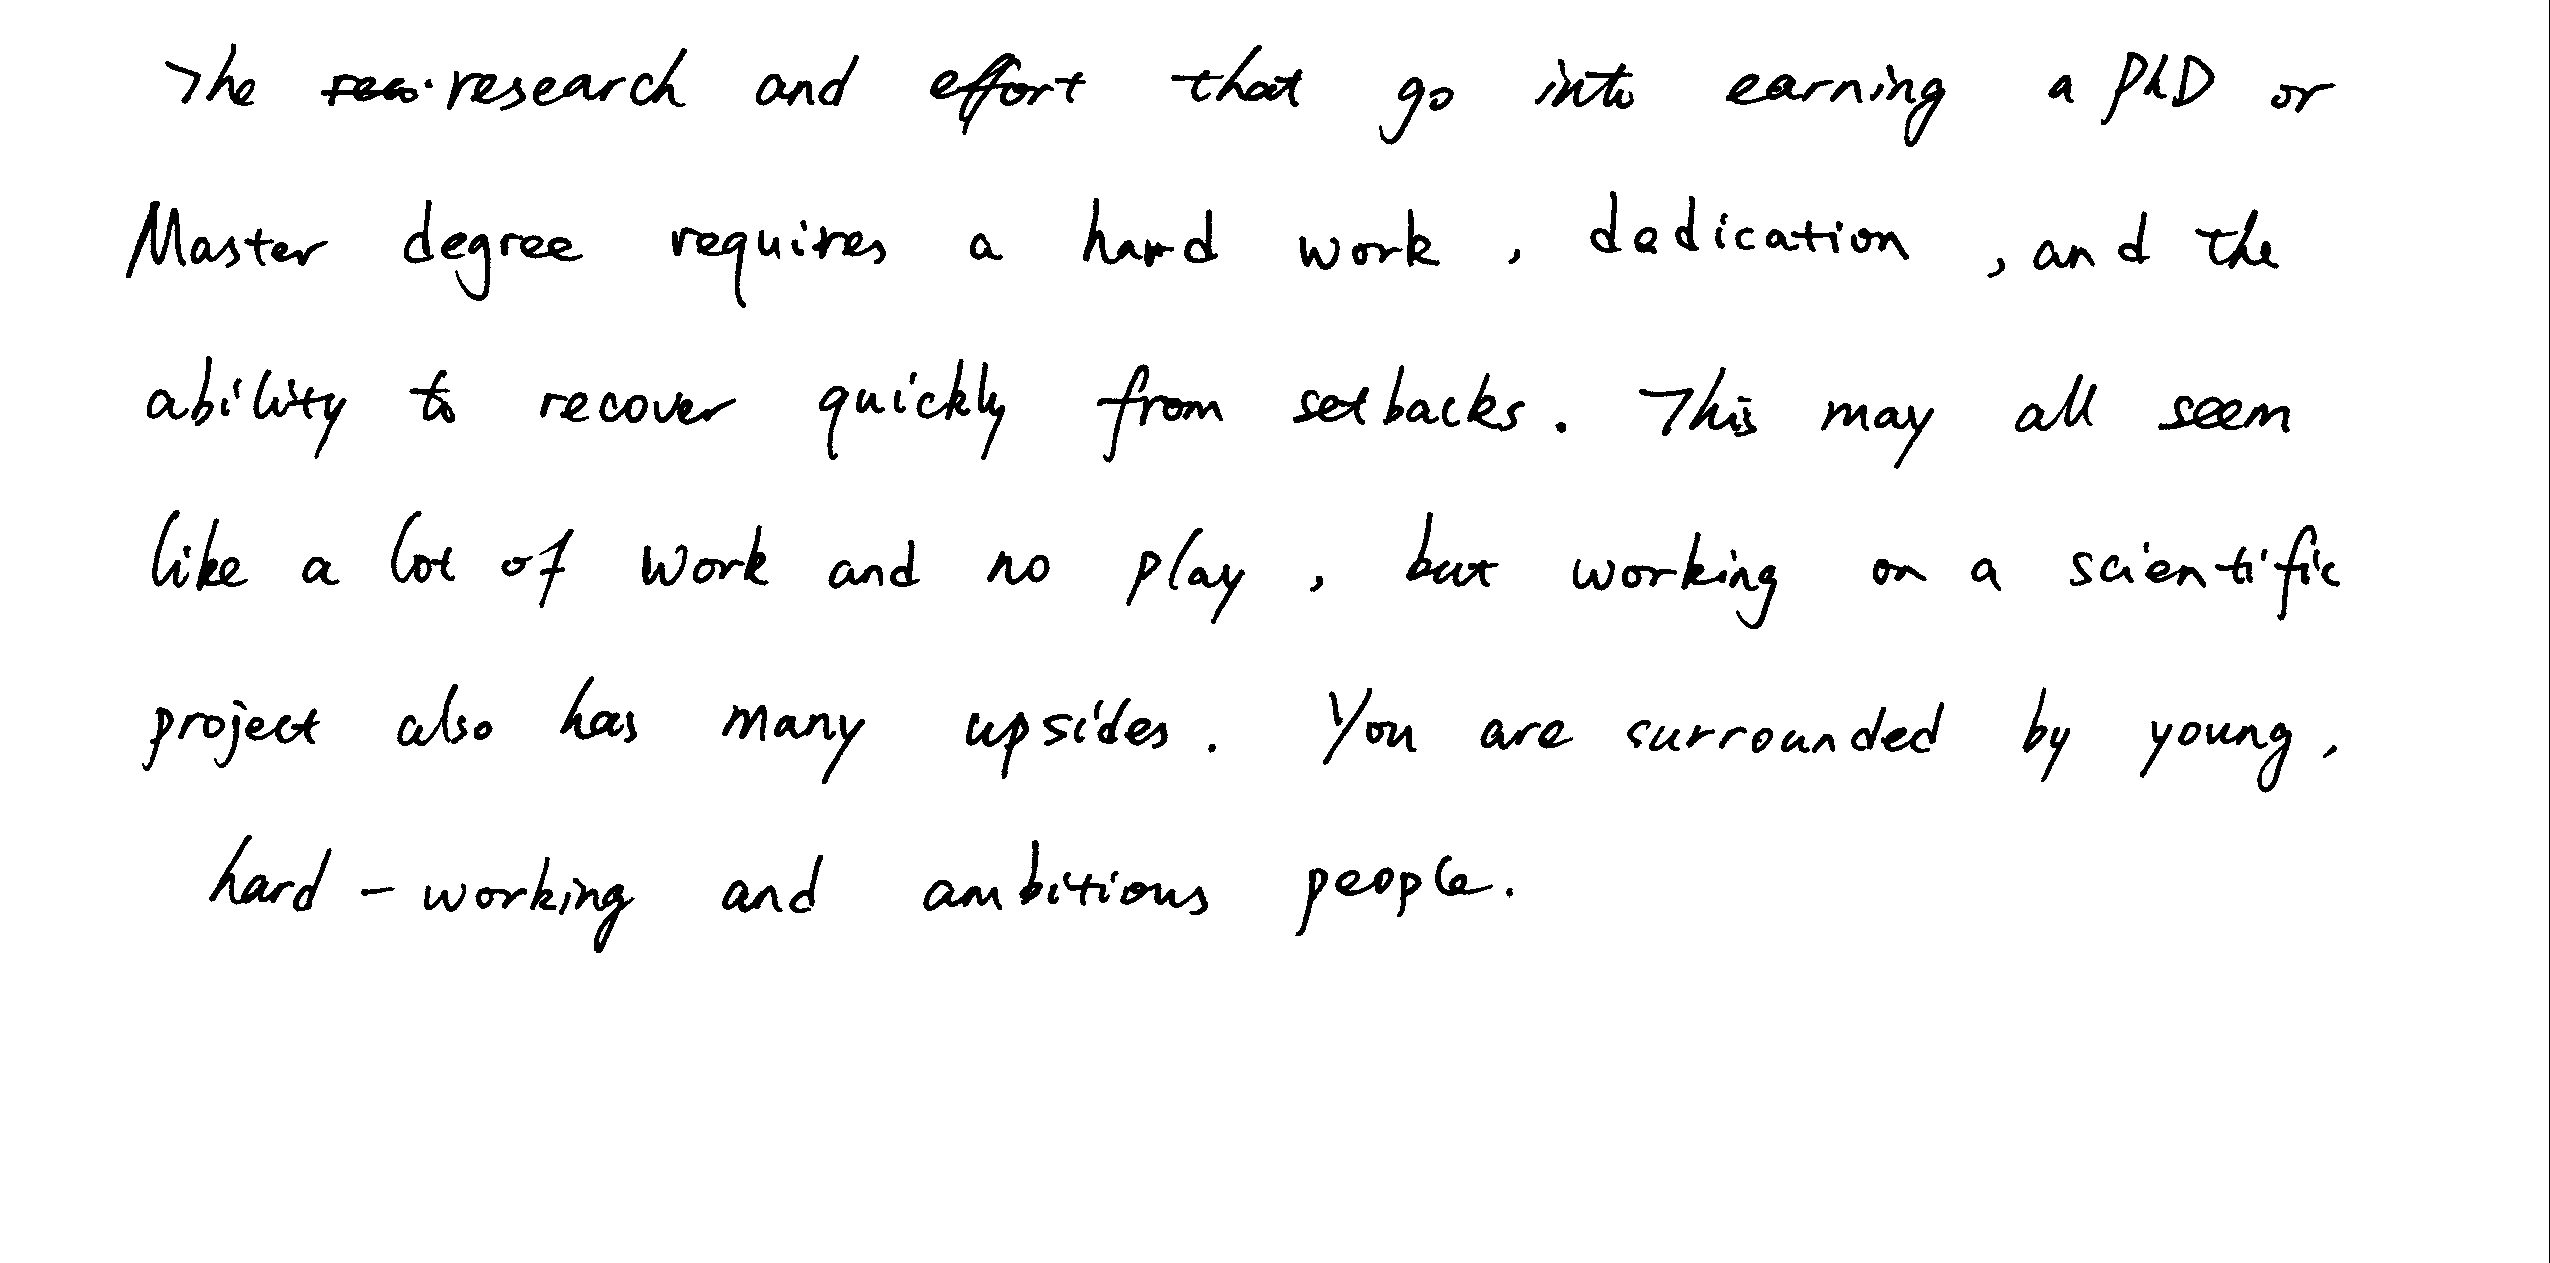 The research and effort that go into earning a PhD or
Master degree requires a hard work, dedication, and the
ability to recover quickly from setbacks. This may all seem
like a lot of work and no play, but working on a scientific
project also has many upsides. You are surrounded by young,
hard-working and ambitious people.